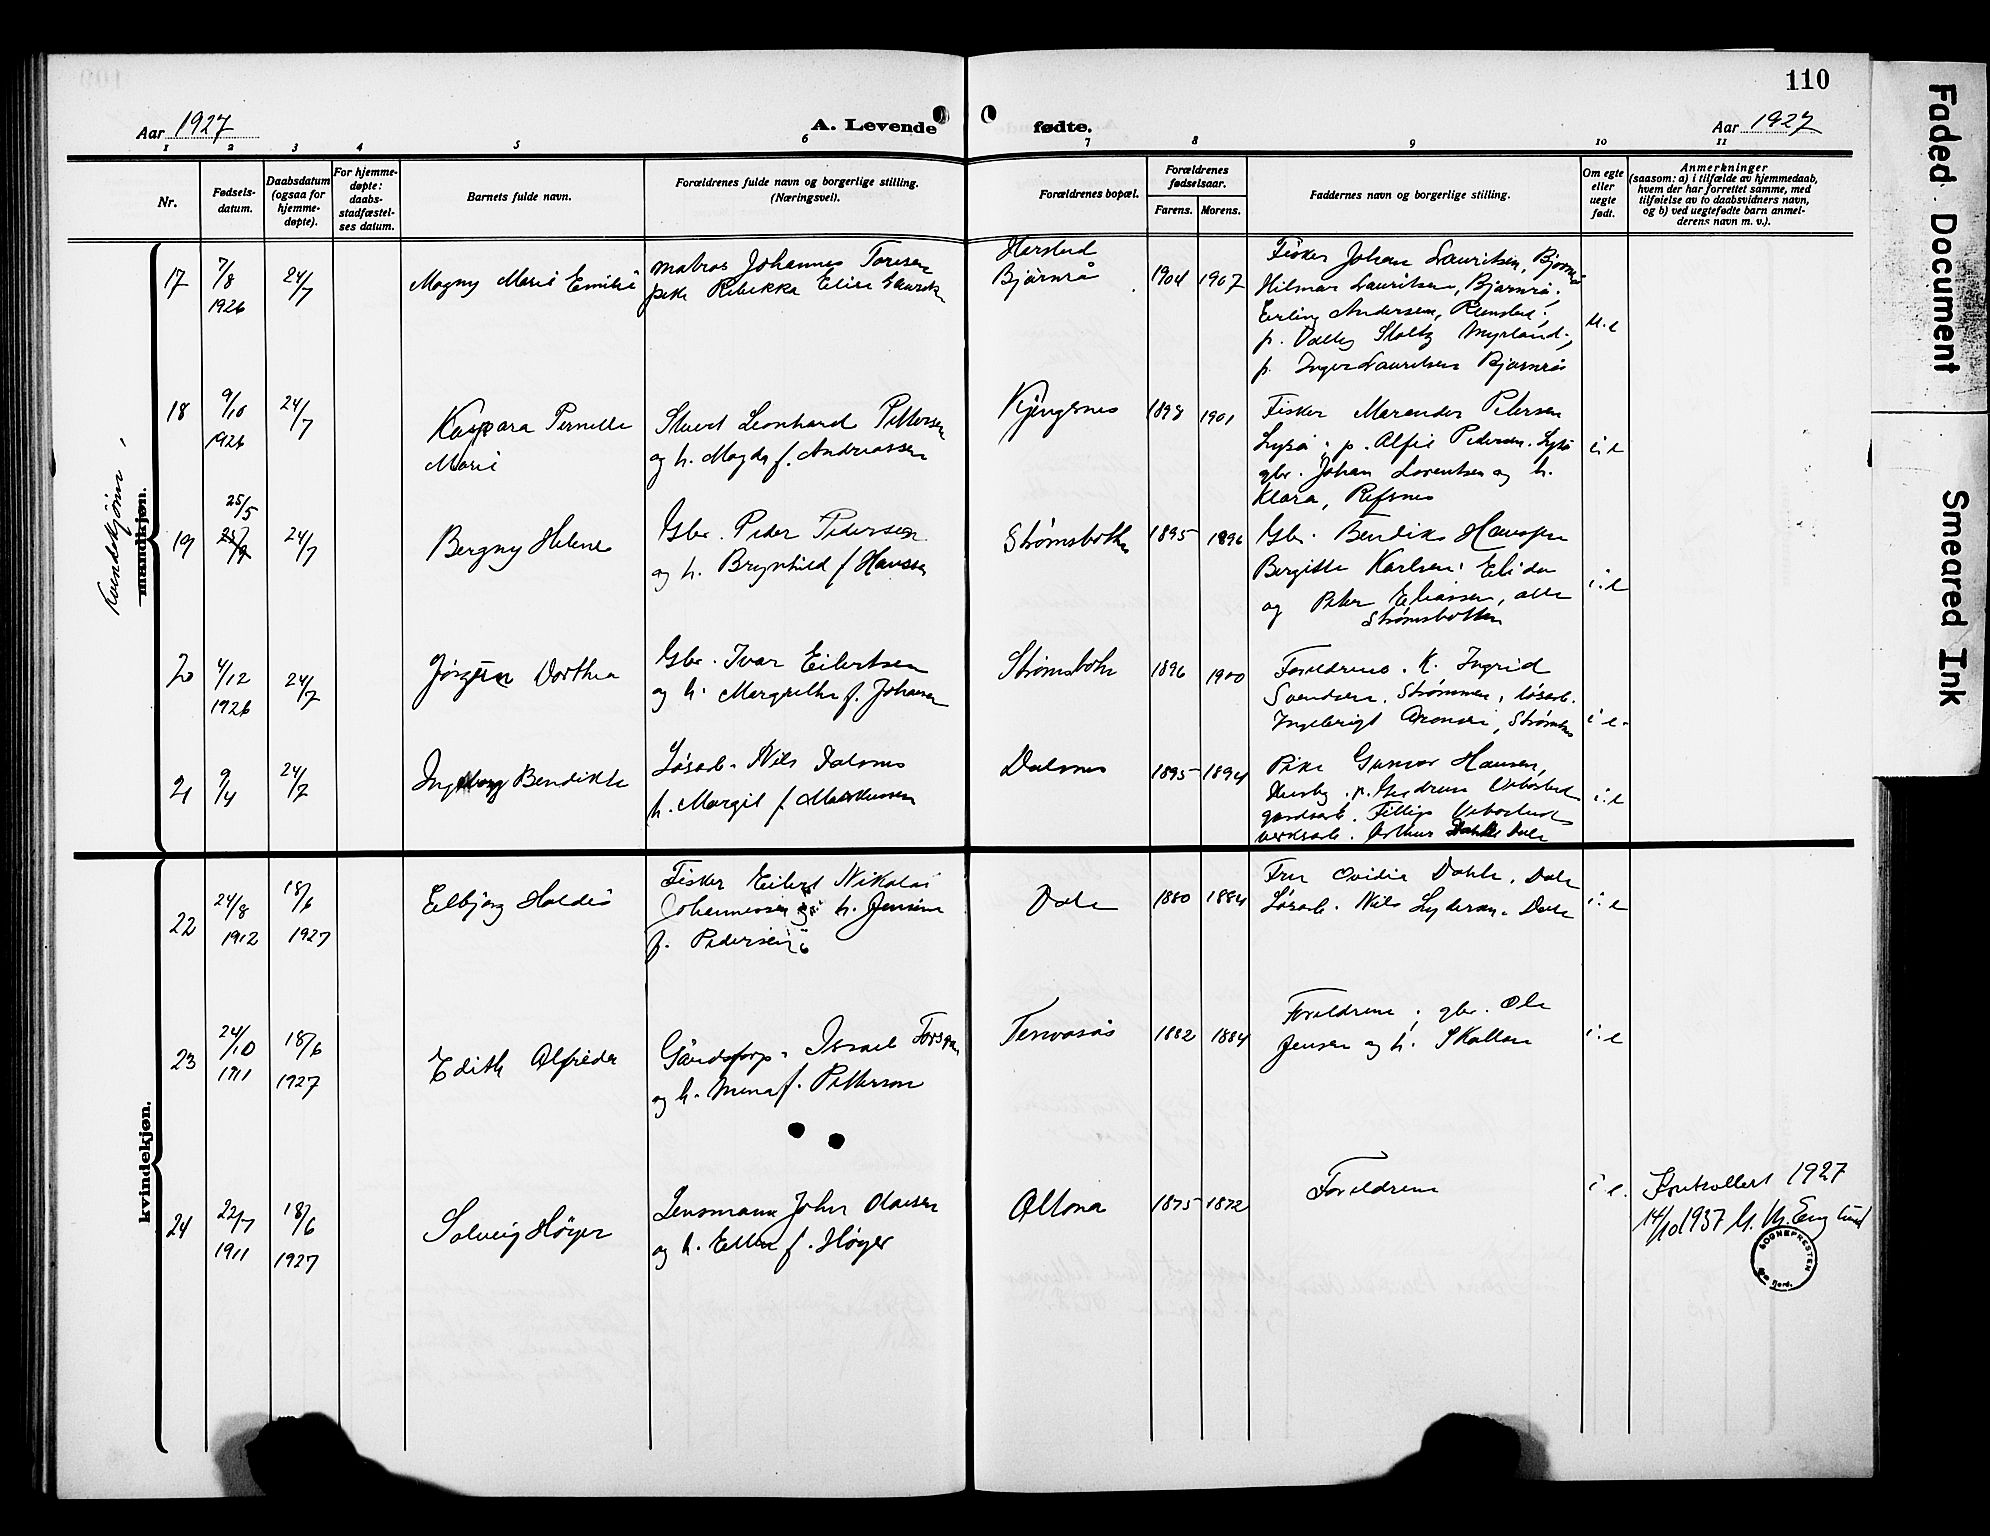 110
Aar 1927
A. Levende
fødte.
Aar 1927
1 2 3 4 5 6 7 8 9 10 11
Nr.
Fødsels-
datum.
Daabsdatum
(ogsaa for
hjemme-
døpte).
For hjemme-
døpte:
daabs-
stadfæstel-
ses datum.
Barnets fulde navn.
Forældrenes fulde navn og borgerlige stilling.
(Næringsvei).
Forældrenes bopæl.
Forældrenes
fødselsaar.
Farens. Morens.
Faddernes navn og borgerlige stilling.
Om egte
eller
uegte
født.
Anmerkninger
(saasom: a) i tilfælde av hjemmedaab,
hvem der har forrettet samme, med
tilføielse av to daabsvidners navn,
og b) ved uegtefødte barn anmel-
derens navn m. v.).
Kvindekjønn
mandkjøn.
17
7/8
1926
24/7
Magny Marie Emilie
matros Johannes Toresen
pike Rebekka Elise
Harstad
Bjårnrå
1904 1907
Fisker Johan Lauritsen, Bjarnrå
Hilmar Lauritsen, Bjarnrå;
Erling Andersen,
p. Stoltz Myrland;
p. Inger Lauritsen Bjarnrå
u.e
18
9/10
1926
24/7
Kaspara Pernelle
Marie
Leonhard Pettersen
og h. Magda f. Andreassen
Kjengsnes
1901
Fisker Petersen
p. Pedersen.
gbr. Johan Lorentsen og h.
Klara, Refsnes
i.e
19
25/5
24/7
Bergny Helene
Gbr. Peder Pedersen
og h. Brynhild f. Hanssen
Strømsbotten
1895 1896
Gbr. Bendiks Hanssen
Bergitte Karlsen; Elida
og Peter Eliassen, alle
Strømsbotten
i.e
20
4/12
1926
24/7
Jørgine Dorthea
Gbr. Ivar Eilertsen
og h. Margrethe f. Johansen
Strømsbotn
1896 1900
Foreldrene. K. Ingrid
Svendsen, Strømmen, løsarb.
Ingebrigt Aronsen,
i.e.
21
9/4
24/7
Ingeborg Bendikte
Løsarb. Nils Dalsnes
h. Margit f. Markussen
Dalsnes
1895 1894
Pike Gunvor Hansen,
p. Gudrun
gardsarb.
Arthur Dahle Dale
i.e
kvindekjøn.
22
24/8
1912
18/6
1927
Elbjørg Haldis
Fisker Eilert Nikolai
Johannessen og h. Jensine
f. Pedersen
Dale
1880 1884
Fru Ovidia Dahle, Dale
Løsarb. Nils Lydersen, Dale
i.e
23
24/10
1911
18/6
1927
Edith Alfride
Gårdsforp. Israel
og h. Mina f. Petterson
1882 1884
Foreldrene; gbr. Ole
Jensen og h. Skallan
i.e
24
22/7
1911
18/6
1927
Solveig Høyer
Lensmann John Olausen
og h. Ellen f. Høyer
Altona
1875 1872
Foreldrene
i.e.
Kontrollert 1927
14/10 1937
SOGNEPRESTEN
Faded Document
Smeared Ink